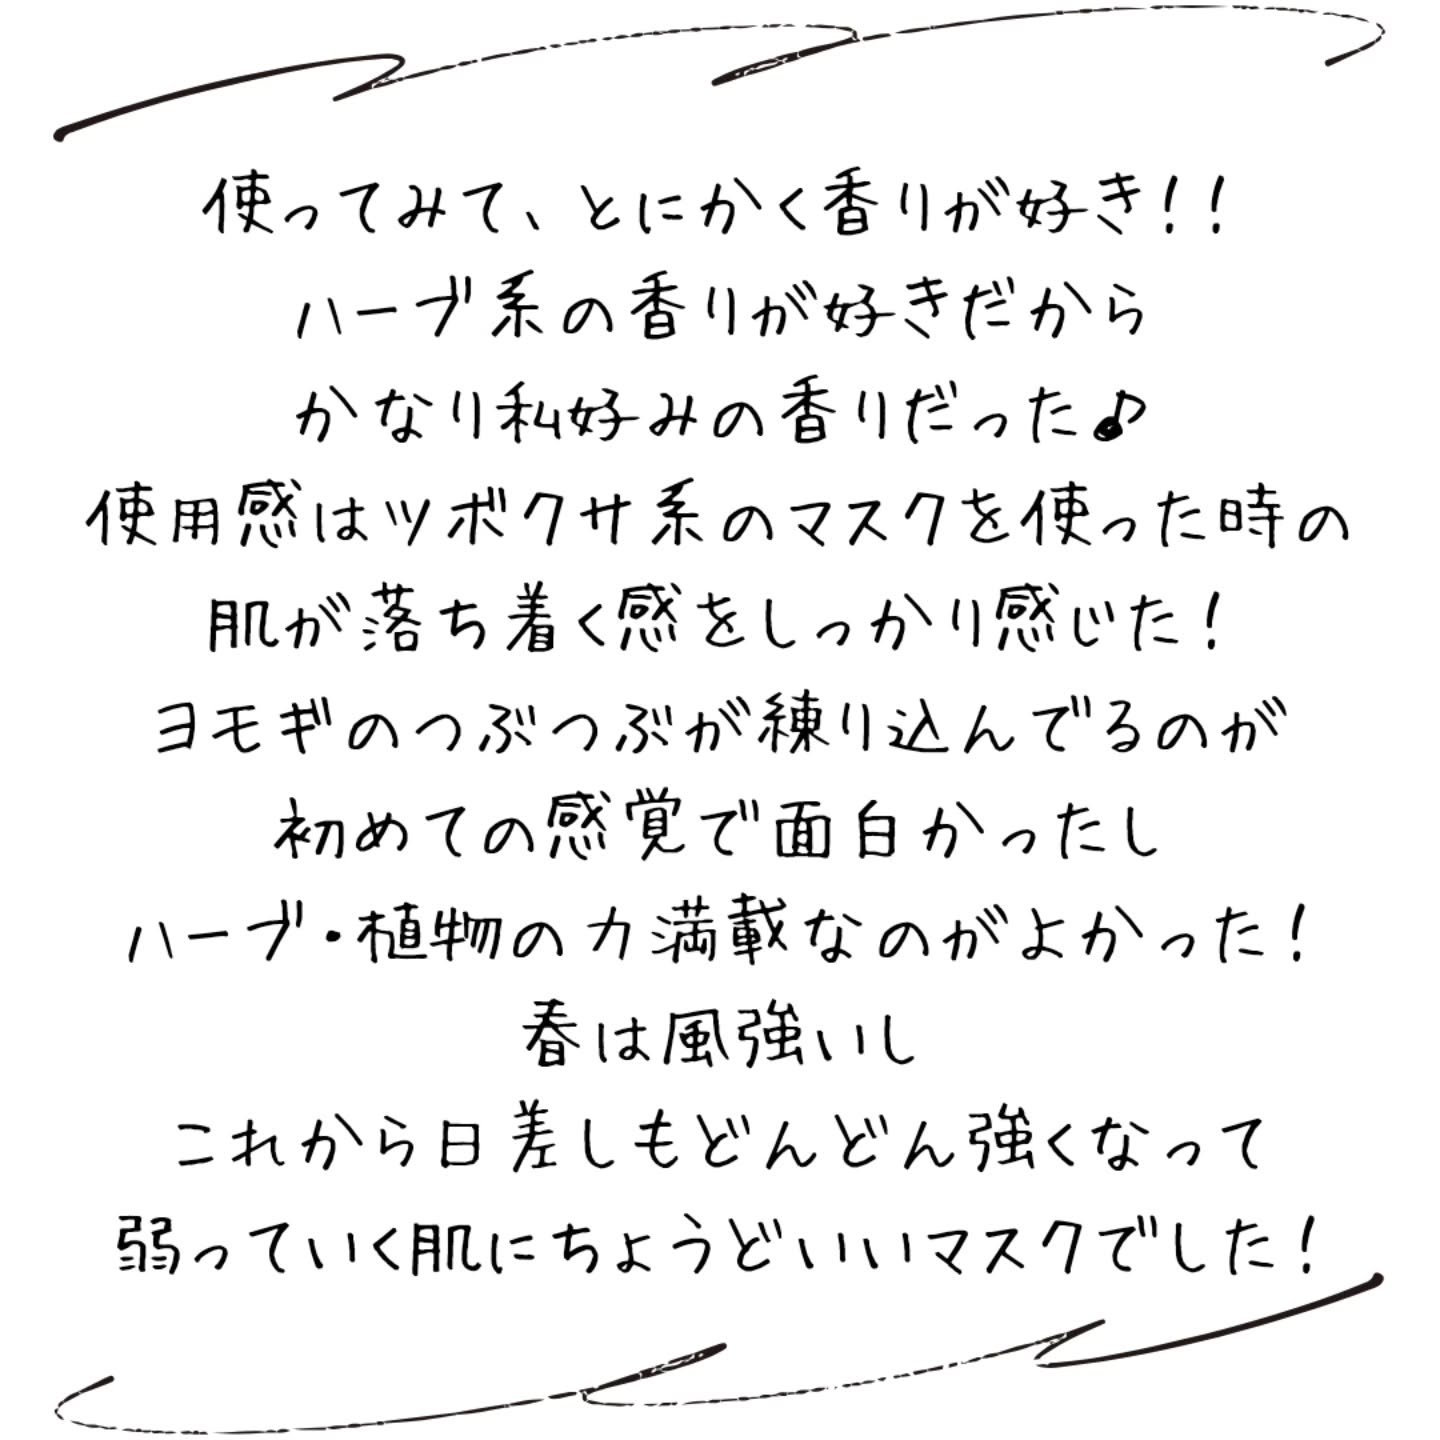 使ってみて、とにかく香りが好き!!
ハーブ系の香りが好きだから
かなり私好みの香りだった♪
使用感はツボクサ系のマスクを使った時の
肌が落ち着く感をしっかり感じた!
ヨモギのつぶつぶが練り込んでるのが
初めての感覚で面白かったし
ハーブ・植物の力満載なのがよかった!
春は風強いし
これから日差しもどんどん強くなって
弱っていく肌にちょうどいいマスクでした!